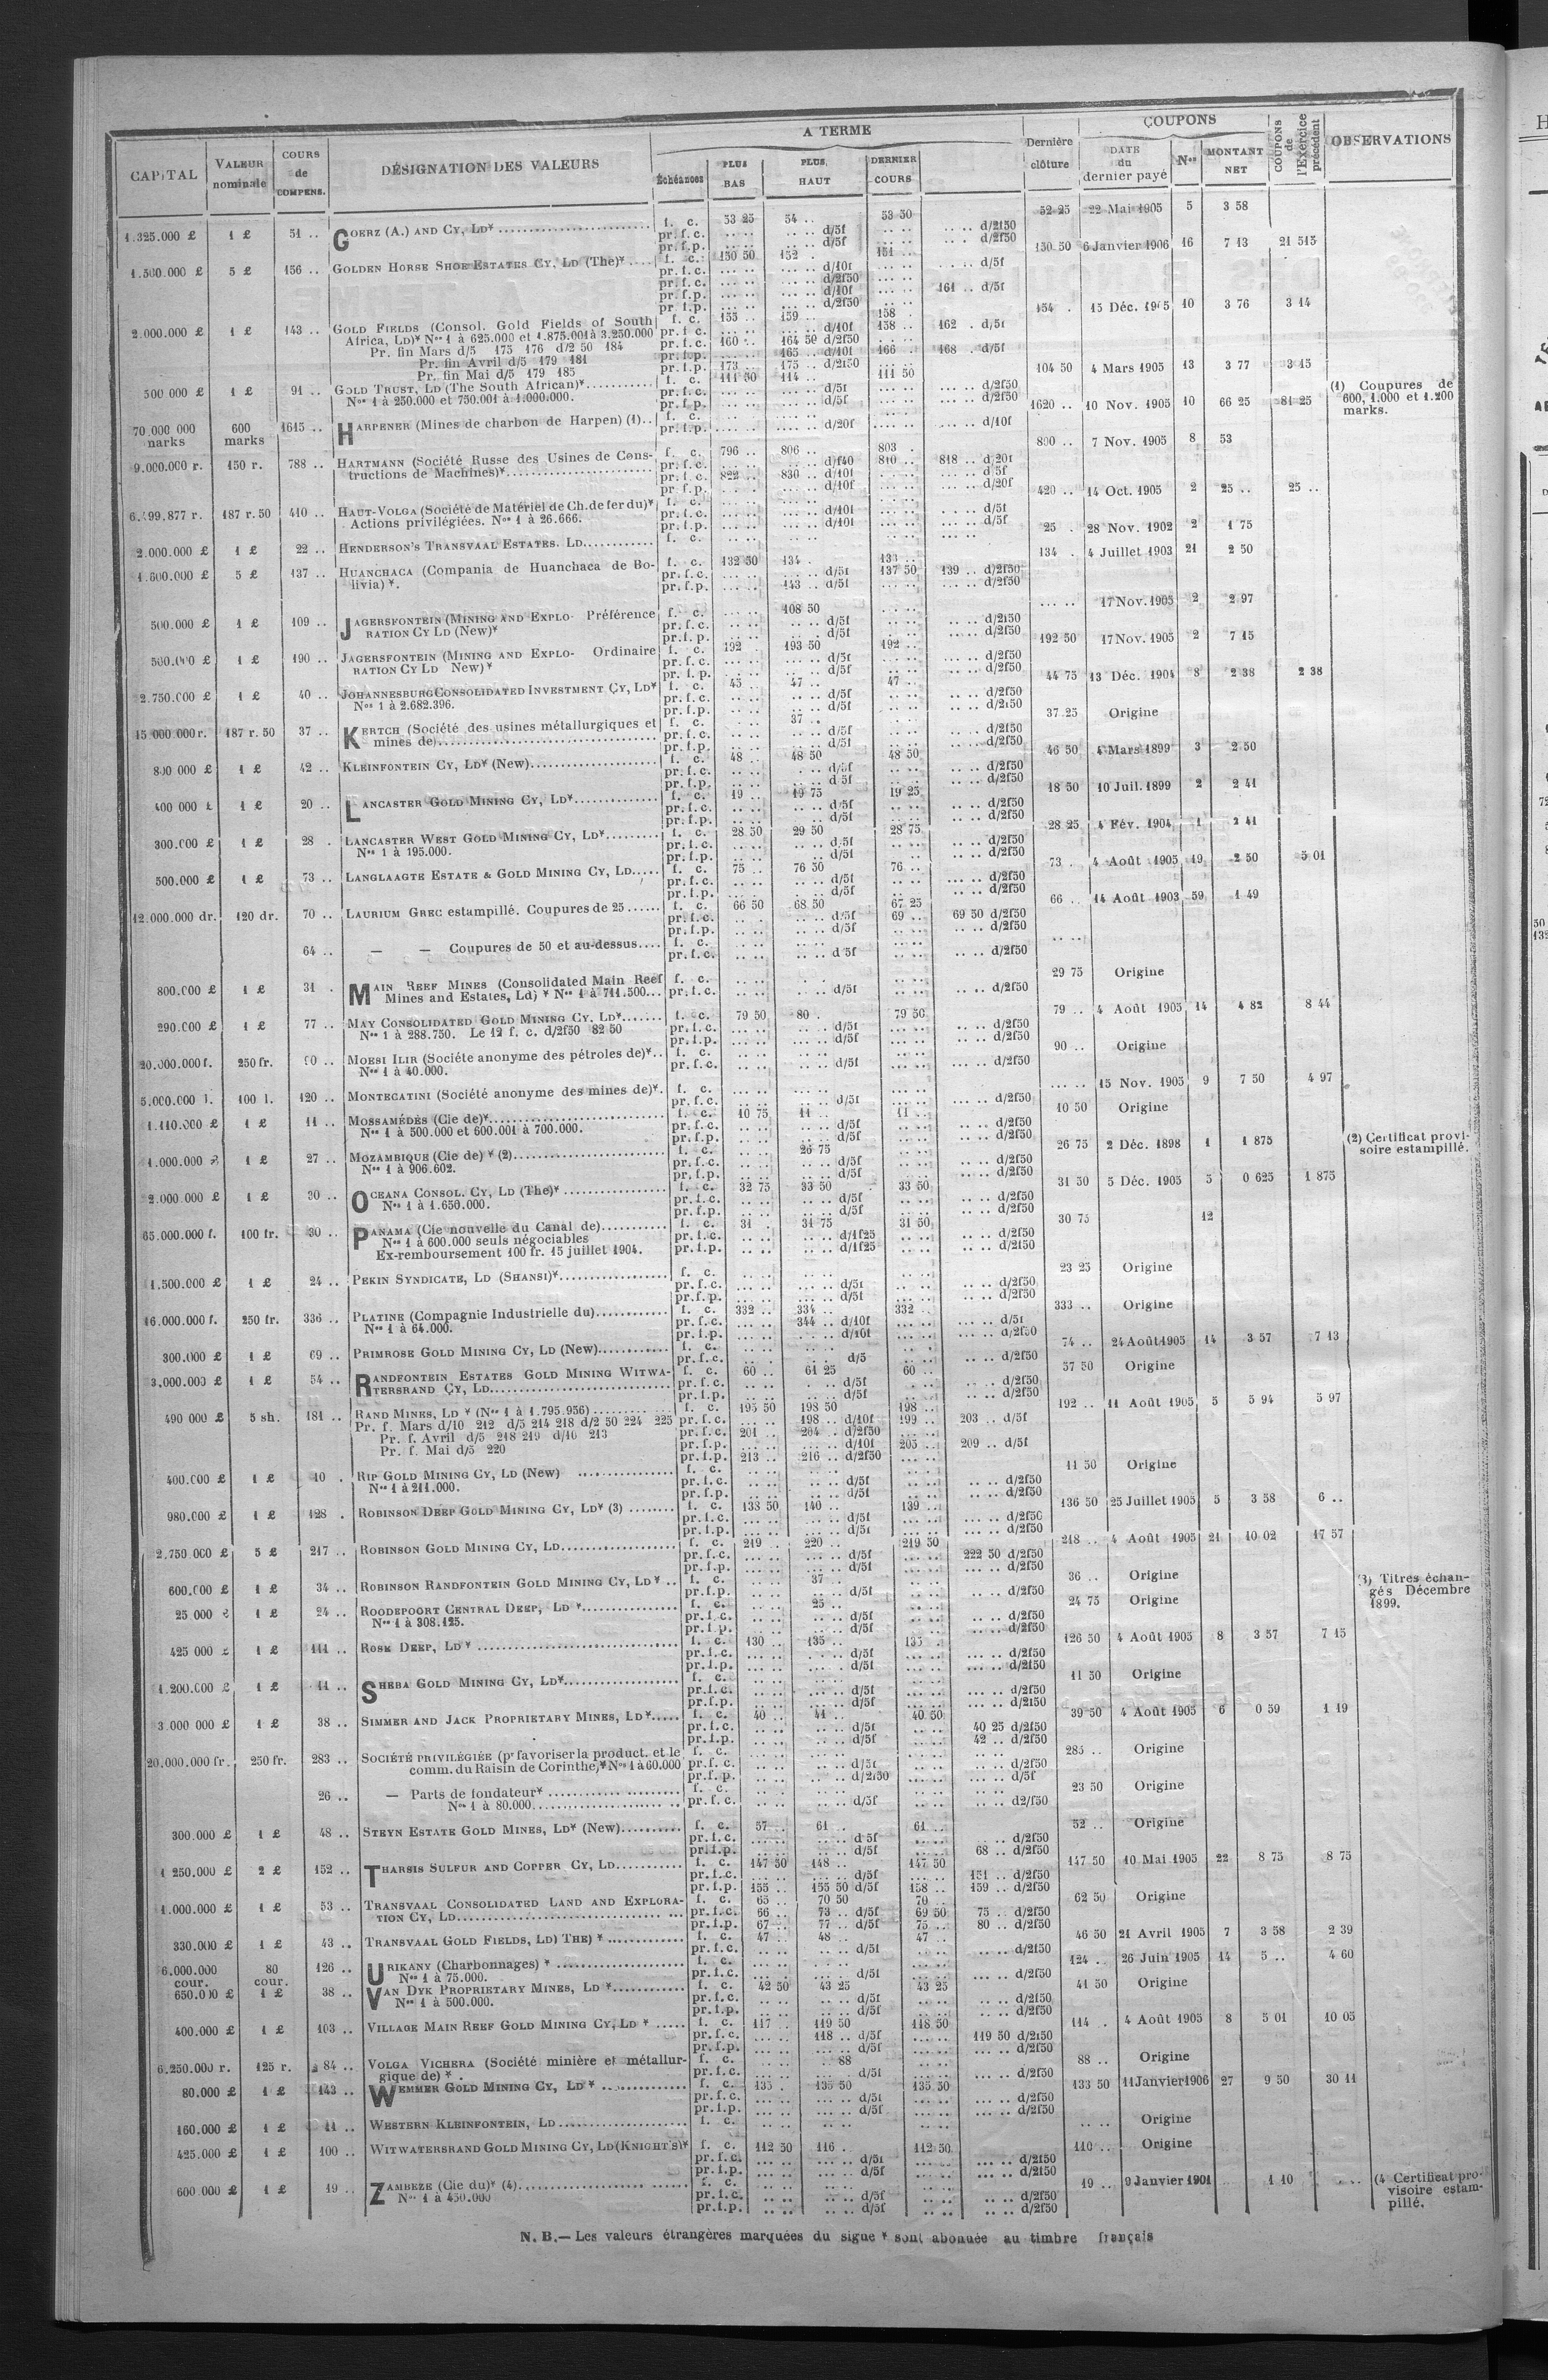 CAPITAL | VALEUR nominale | COURS de COMPENS. | DÉSIGNATION DES VALEURS | A TERME | Dernière clôture | COUPONS | COUPONS de l'Exercice précédent | OBSERVATIONS
Échéances | PLUS BAS | PLUS HAUT | DERNIER COURS | DATE du dernier payé | Nos | MONTANT NET
1.325.000 £ | 1 £ | 51 .. | GOERZ (A.) AND CY, LD* | f. c. | 53 25 | 54 .. | 53 50 | 52 25 | 22 Mai 1905 | 5 | 3 58
pr. f. c. | d/5f | d/2f50
pr. f. p. | d/5f | d/2f50
1.500.000 £ | 5 £ | 156 .. | GOLDEN HORSE SHOE ESTATES CY, LD (The)* | f. c. | 150 50 | 152 . | 151 .. | 150 50 | 6 Janvier 1906 | 16 | 7 13 | 21 515
pr. f. c. | d/10f | d/5f
pr. f. c. | d/2f50
pr. f. p. | d/10f | 161 .. d/5f
pr. f. p. | d/2f50
2.000.000 £ | 1 £ | 143 .. | GOLD FIELDS (Consol. Gold Fields of South | f. c. | 155 .. | 159 .. | 158 . | 154 . | 15 Déc. 1905 | 10 | 3 76 | 3 14
Africa, LD)* Nos 1 à 625.000 et 1.875.001 à 3.250.000 | pr. f. c. | d/10f | 158 .. | 162 . d/5f
Pr. fin Mars d/5 175 176 d/2 50 184 | pr. f. c. | 160 .. | 164 50 d/2f50
Pr. fin Avril d/5 179 181 | pr. f. p. | 165 .. d/10f | 166 .. | 168 . d/5f
Pr. fin Mai d/5 179 185 | pr. f. p. | 173 .. | 175 .. d/2f50
500 000 £ | 1 £ | 91 .. | GOLD TRUST, LD (The South African)* | f. c. | 111 50 | 114 .. | 111 50 | 104 50 | 4 Mars 1905 | 13 | 3 77 | 3 15
Nos 1 à 250.000 et 750.001 à 1.000.000. | pr. f. c. | d/5f | d/2f50
pr. f. p. | d/5f | d/2f50
(1) Coupures de
600, 1.000 et 1.200
marks.
70.000 000 marks | 600 marks | 1615 .. | HARPENER (Mines de charbon de Harpen) (1) | f. c. | 1620 .. | 10 Nov. 1905 | 10 | 66 25 | 81 25
pr. f. p. | d/20f | d/10f
9.000.000 r. | 150 r. | 788 .. | HARTMANN (Société Russe des Usines de Cons- | f. c. | 796 .. | 806 .. | 803 . | 800 .. | 7 Nov. 1905 | 8 | 53
tructions de Machines)* | pr. f. c. | d/f40 | 810 .. | 818 .. d/20f
pr. f. c. | 822 .. | 830 .. d/10f | d 5f
pr. f. p. | d/10f | d/20f
187 r. 50 | 410 .. | HAUT-VOLGA (Société de Matériel de Ch. de fer du)* | f. c. | 420 .. | 14 Oct. 1905 | 2 | 25 .. | 25 ..
Actions privilégiées. Nos 1 à 26.666. | pr. f. c. | d/10f | d/5f
pr. f. p. | d/10f | d/5f
2.000.000 £ | 1 £ | 22 .. | HENDERSON'S TRANSVAAL ESTATES. LD | f. c. | 25 . | 28 Nov. 1902 | 2 | 1 75
1.600.000 £ | 5 £ | 137 .. | HUANCHACA (Compania de Huanchaca de Bo- | f. c. | 132 50 | 134 . | 134 . | 4 Juillet 1903 | 21 | 2 50
livia)*. | pr. f. c. | d/5f | 137 50 | 139 .. d/2f50
pr. f. p. | 143 .. d/5f | d/2f50
500.000 £ | 1 £ | 109 .. | JAGERSFONTEIN (MINING AND EXPLO- Préférence | f. c. | 108 50 | 17 Nov. 1905 | 2 | 2 97
RATION CY LD (New)* | pr. f. c. | d/5f | d/2f50
pr. f. p. | d/5f | d/2f50
500.000 £ | 1 £ | 190 .. | JAGERSFONTEIN (MINING AND EXPLO- Ordinaire | f. c. | 192 . | 193 50 | 192 .. | 192 50 | 17 Nov. 1905 | 2 | 7 15
RATION CY LD New)* | pr. f. c. | d/5f | d/2f50
pr. f. p. | d/5f | d/2f50
2.750.000 £ | 1 £ | 40 .. | JOHANNESBURG CONSOLIDATED INVESTMENT CY, LD* | f. c. | 45 . | 47 .. | 47 . | 44 75 | 13 Déc. 1904 | 8 | 2 38 | 2 38
Nos 1 à 2.682.396. | pr. f. c. | d/5f | d/2f50
pr. f. p. | d/5f | d/2f50
15 000.000 r. | 187 r. 50 | 37 .. | KERTCH (Société des usines métallurgiques et | f. c. | 37 .. | 37 25 | Origine
mines de) | pr. f. c. | d/5f | d/2f50
pr. f. p. | d/5f | d/2f50
800 000 £ | 1 £ | 42 .. | KLEINFONTEIN CY, LD* (New) | f. c. | 48 .. | 48 50 | 48 50 | 46 50 | 4 Mars 1899 | 3 | 2 50
pr. f. c. | d/5f | d/2f50
pr. f. p. | d 5f | d/2f50
400 000 £ | 1 £ | 20 .. | LANCASTER GOLD MINING CY, LD* | f. c. | 19 .. | 19 75 | 19 25 | 18 50 | 10 Juil. 1899 | 2 | 2 41
pr. f. c. | d 5f | d/2f50
pr. f. p. | d/5f | d/2f50
300.000 £ | 1 £ | 28 . | LANCASTER WEST GOLD MINING CY, LD* | f. c. | 28 50 | 29 50 | 28 75 | 28 25 | 4 Fév. 1904 | 1 | 2 41
Nos 1 à 195.000. | pr. f. c. | d 5f | d/2f50
pr. f. p. | d/5f | d/2f50
500.000 £ | 1 £ | 73 .. | LANGLAAGTE ESTATE & GOLD MINING CY, LD | f. c. | 75 .. | 76 50 | 76 .. | 73 . | 4 Août 1905 | 19 | 2 50 | 5 01
pr. f. c. | d/5f | d/2f50
pr. f. p. | d/5f | d/2f50
12.000.000 dr. | 120 dr. | 70 .. | LAURIUM GREC estampillé. Coupures de 25 | f. c. | 66 50 | 68 50 | 67 25 | 66 .. | 14 Août 1903 | 59 | 1 49
pr. f. c. | d/5f | 69 .. | 69 50 d/2f50
pr. f. p. | d/5f | d/2f50
64 .. | — — Coupures de 50 et au-dessus | f. c.
pr. f. c. | d 5f | d/2f50
800.000 £ | 1 £ | 31 . | MAIN REEF MINES (Consolidated Main Reef | f. c. | 29 75 | Origine
Mines and Estates, Ld) * Nos 1 à 711.500 | pr. f. c. | d/5f | d/2f50
290.000 £ | 1 £ | 77 .. | MAY CONSOLIDATED GOLD MINING CY, LD* | f. c. | 79 50 | 80 . | 79 50 | 79 .. | 4 Août 1905 | 14 | 4 82 | 8 44
Nos 1 à 288.750. Le 12 f. c. d/2f50 82 50 | pr. f. c. | d/5f | d/2f50
pr. f. p. | d/5f | d/2f50
20.000.000 f. | 250 fr. | MOESI ILIR (Sociéte anonyme des pétroles de)* | f. c. | 90 .. | Origine
Nos 1 à 40.000. | pr. f. c. | d/5f | d/2f50
5.000.000 l. | 100 l. | 120 .. | MONTECATINI (Société anonyme des mines de)* | f. c. | 15 Nov. 1905 | 9 | 7 50 | 4 97
pr. f. c. | d/5f | d/2f50
1.110.000 £ | 1 £ | 11 .. | MOSSAMÉDÈS (Cie de)* | f. c. | 10 75 | 11 .. | 11 .. | 10 50 | Origine
Nos 1 à 500.000 et 600.001 à 700.000. | pr. f. c. | d/5f | d/2f50
pr. f. p. | d/5f | d/2f50
1.000.000 £ | 1 £ | 27 .. | MOZAMBIQUE (Cie de) * (2) | f. c. | 26 75 | 26 75 | 2 Déc. 1898 | 1 | 1 875 | (2) Certificat provi-
Nos 1 à 906.602. | pr. f. c. | d/5f | d/2f50 | soire estampillé.
pr. f. p. | d/5f | d/2f50
2.000.000 £ | 1 £ | 30 .. | OCEANA CONSOL. CY, LD (The)* | f. c. | 32 75 | 33 50 | 33 50 | 31 50 | 5 Déc. 1905 | 5 | 0 625 | 1 875
Nos 1 à 1.650.000. | pr. f. c. | d/5f | d/2f50
pr. f. p. | d/5f | d/2f50
65.000.000 f. | 100 fr. | 30 .. | PANAMA (Cie nouvelle du Canal de) | f. c. | 31 . | 31 75 | 31 50 | 30 75 | 12
Nos 1 à 600.000 seuls négociables | pr. f. c. | d/1f25 | d/2f50
Ex-remboursement 100 fr. 15 juillet 1904. | pr. f. p. | d/1f25 | d/2f50
1.500.000 £ | 1 £ | 24 .. | PEKIN SYNDICATE, LD (SHANSI)* | f. c. | 23 25 | Origine
pr. f. c. | d/5f | d/2f50
pr. f. p. | d/5f | d/2f50
16.000.000 f. | 250 fr. | 336 .. | PLATINE (Compagnie Industrielle du) | f. c. | 332 .. | 334 .. | 332 .. | 333 .. | Origine
Nos 1 à 64.000. | pr. f. c. | 344 .. d/10f | d/5f
pr. f. p. | d/10f | d/2f50
300.000 £ | 1 £ | 69 .. | PRIMROSE GOLD MINING CY, LD (New) | f. c. | 74 .. | 24 Août 1905 | 14 | 3 57 | 7 13
pr. f. c. | d/5 | d/2f50
3,000.000 £ | 1 £ | 54 .. | RANDFONTEIN ESTATES GOLD MINING WITWA- | f. c. | 60 .. | 61 25 | 60 .. | 57 50 | Origine
TERSRAND CY, LD | pr. f. c. | d/5f | d/2f50
pr. f. p. | d/5f | d/2f50
490 000 £ | 5 sh. | 181 .. | RAND MINES, LD * (Nos 1 à 1.795.956) | f. c. | 195 50 | 198 50 | 198 .. | 192 .. | 11 Août 1905 | 5 | 5 94 | 5 97
Pr. f. Mars d/10 212 d/5 214 218 d/2 50 224 225 | pr. f. c. | 198 .. d/10f | 199 .. | 203 .. d/5f
Pr. f. Avril d/5 218 219 d/10 213 | pr. f. c. | 201 .. | 204 .. d/2f50
Pr. f. Mai d/5 220 | pr. f. p. | d/10f | 205 .. | 209 .. d/5f
pr. f. p. | 213 .. | 216 .. d/2f50
400.000 £ | 1 £ | 10 . | RIP GOLD MINING CY, LD (New) | f. c. | 11 50 | Origine
Nos 1 à 211.000. | pr. f. c. | d/5f | d/2f50
pr. f. p. | d/5f | d/2f50
980.000 £ | 1 £ | 128 . | ROBINSON DEEP GOLD MINING CY, LD* (3) | f. c. | 138 50 | 140 .. | 139 .. | 136 50 | 25 Juillet 1905 | 5 | 3 58 | 6 ..
pr. f. c. | d/5f | d/2f50
pr. f. p. | d/5f | d/2f50
2.750 000 £ | 5 £ | 217 .. | ROBINSON GOLD MINING CY, LD | f. c. | 219 .. | 220 .. | 219 50 | 218 .. | 4 Août 1905 | 21 | 10 02 | 17 57
pr. f. c. | d/5f | 222 50 d/2f50
pr. f. p. | d/5f | d/2f50
600.000 £ | 1 £ | 34 .. | ROBINSON RANDFONTEIN GOLD MINING CY, LD * | f. c. | 37 .. | 36 .. | Origine | (3) Titres échan-
pr. f. p. | d/5f | d/2f50 | gés Décembre
1899.
25 000 £ | 1 £ | 24 .. | ROODEPOORT CENTRAL DEEP, LD * | f. c. | 25 .. | 24 75 | Origine
Nos 1 à 308.125. | pr. f. c. | d/5f | d/2f50
pr. f. p. | d/5f | d/2f50
425 000 £ | 1 £ | 111 .. | ROSE DEEP, LD * | f. c. | 130 .. | 135 .. | 135 .. | 126 50 | 4 Août 1905 | 8 | 3 57 | 7 15
pr. f. c. | d/5f | d/2f50
pr. f. p. | d/5f | d/2f50
1.200.000 £ | 1 £ | 11 .. | SHEBA GOLD MINING CY, LD* | f. c. | 11 50 | Origine
pr. f. c. | d/5f | d/2f50
pr. f. p. | d/5f | d/2f50
3.000 000 £ | 1 £ | 38 .. | SIMMER AND JACK PROPRIETARY MINES, LD* | f. c. | 40 .. | 41 .. | 40 50 | 39 50 | 4 Août 1905 | 6 | 0 59 | 1 19
pr. f. c. | d/5f | 40 25 d/2f50
pr. f. p. | d/5f | 42 .. d/2f50
20.000.000 fr. | 250 fr. | 283 .. | SOCIÉTÉ PRIVILÉGIÉE (pr favoriser la product. et le | f. c. | 285 .. | Origine
comm. du Raisin de Corinthe)* Nos 1 à 60.000 | pr. f. c. | d/5f | d/2f50
pr. f. p. | d/2f50 | d/5f
26 .. | — Parts de fondateur* | f. c. | 23 50 | Origine
Nos 1 à 80.000 | pr. f. c. | d/5f | d2/f50
300.000 £ | 1 £ | 48 .. | STEYN ESTATE GOLD MINES, LD* (New) | f. c. | 57 .. | 61 .. | 61 .. | 52 .. | Origine
pr. f. c. | d 5f | d/2f50
pr. f. p. | d/5f | 68 .. d/2f50
1 250.000 £ | 2 £ | 152 .. | THARSIS SULFUR AND COPPER CY, LD | f. c. | 147 50 | 148 .. | 147 50 | 147 50 | 10 Mai 1905 | 22 | 8 75 | 8 75
pr. f. c. | d/5f | 151 .. d/2f50
pr. f. p. | 155 .. | 155 50 d/5f | 158 .. | 159 .. d/2f50
1.000.000 £ | 1 £ | 53 .. | TRANSVAAL CONSOLIDATED LAND AND EXPLORA- | f. c. | 65 .. | 70 50 | 70 .. | 62 50 | Origine
TION CY, LD | pr. f. c. | 66 .. | 73 .. d/5f | 69 50 | 75 .. d/2f50
pr. f. p. | 67 .. | 77 .. d/5f | 75 .. | 80 .. d/2f50
330.000 £ | 1 £ | 43 .. | TRANSVAAL GOLD FIELDS, LD) THE) * | f. c. | 47 .. | 48 .. | 47 .. | 46 50 | 21 Avril 1905 | 7 | 3 58 | 2 39
pr. f. c. | d/5f | d/2f50
6.000.000 cour. | 80 cour. | 126 .. | URIKANY (Charbonnages) * | f. c. | 124 .. | 26 Juin 1905 | 14 | 5 .. | 4 60
Nos 1 à 75.000. | pr. f. c. | d/5f | d/2f50
650.000 £ | 1 £ | 38 .. | VAN DYK PROPRIETARY MINES, LD * | f. c. | 42 50 | 43 25 | 43 25 | 41 50 | Origine
Nos 1 à 500.000. | pr. f. c. | d/5f | d/2f50
pr. f. p. | d/5f | d/2f50
400.000 £ | 1 £ | 103 .. | VILLAGE MAIN REEF GOLD MINING CY, LD * | f. c. | 117 .. | 119 50 | 118 50 | 114 . | 4 Août 1905 | 8 | 5 01 | 10 05
pr. f. c. | 118 .. d/5f | 119 50 d/2f50
pr. f. p. | d/5f | d/2f50
6.250.000 r. | 125 r. | 84 .. | VOLGA VICHERA (Société minière et métallur- | f. c. | 88 | 88 .. | Origine
gique de) * . | pr. f. c. | d/5f | d/2f50
80.000 £ | 1 £ | 143 .. | WEMMER GOLD MINING CY, LD * | f. c. | 135 . | 135 50 | 135 50 | 133 50 | 11 Janvier 1906 | 27 | 9 50 | 30 11
pr. f. c. | d/5f | d/2f50
pr. f. p. | d/5f | d/2f50
160.000 £ | 1 £ | 11 .. | WESTERN KLEINFONTEIN, LD | f. c. | Origine
425.000 £ | 1 £ | 100 .. | WITWATERSRAND GOLD MINING CY, LD (KNIGHT'S)* | f. c. | 112 50 | 116 . | 112 50 | 110 .. | Origine
pr. f. c. | d/5f | d/2f50
pr. f. p. | d/5f | d/2f50
600 000 £ | 1 £ | 19 .. | ZAMBEZE (Cie du)* (4) | f. c. | 19 .. | 9 Janvier 1901 | 1 10 | (4 Certificat pro-
Nos 1 à 450.000 | pr. f. c. | d/5f | d/2f50 | visoire estam-
pr. f. p. | d/5f | d/2f50 | pillé.
N. B.— Les valeurs étrangères marquées du signe * sont abonnée au timbre français